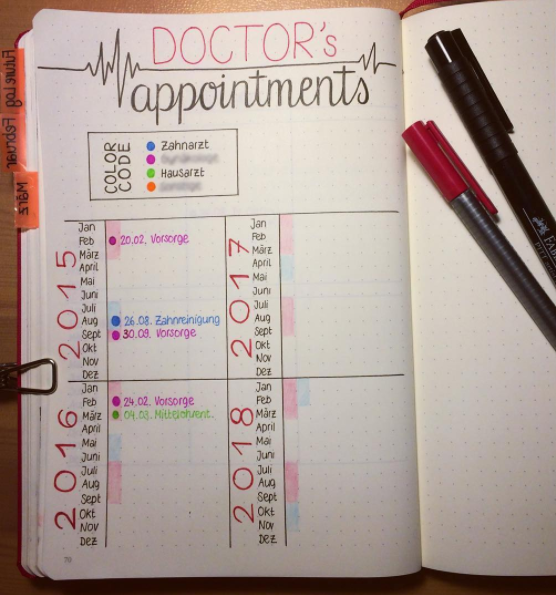 DOCTOR's
appointments
COLOR
CODE
Zahnarzt
Hausarzt
2015
Jan
Feb 20.02. Vorsorge
März
April
Mai
Juni
Juli
Aug 26.08. Zahnreinigung
Sept 30.09. Vorsorge
Okt
Nov
Dez
2017
Jan
Feb
März
April
Mai
Juni
Juli
Aug
Sept
Okt
Nov
Dez
2016
Jan
Feb 24.02. Vorsorge
März 04.03. Mittelohrent.
April
Mai
Juni
Juli
Aug
Sept
Okt
Nov
Dez
2018
Jan
Feb
März
April
Mai
Juni
Juli
Aug
Sept
Okt
Nov
Dez
Future Log
Februar
März